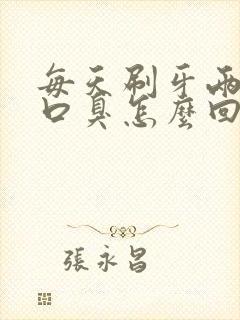 每天刷牙兩
口臭怎麼回
張永昌